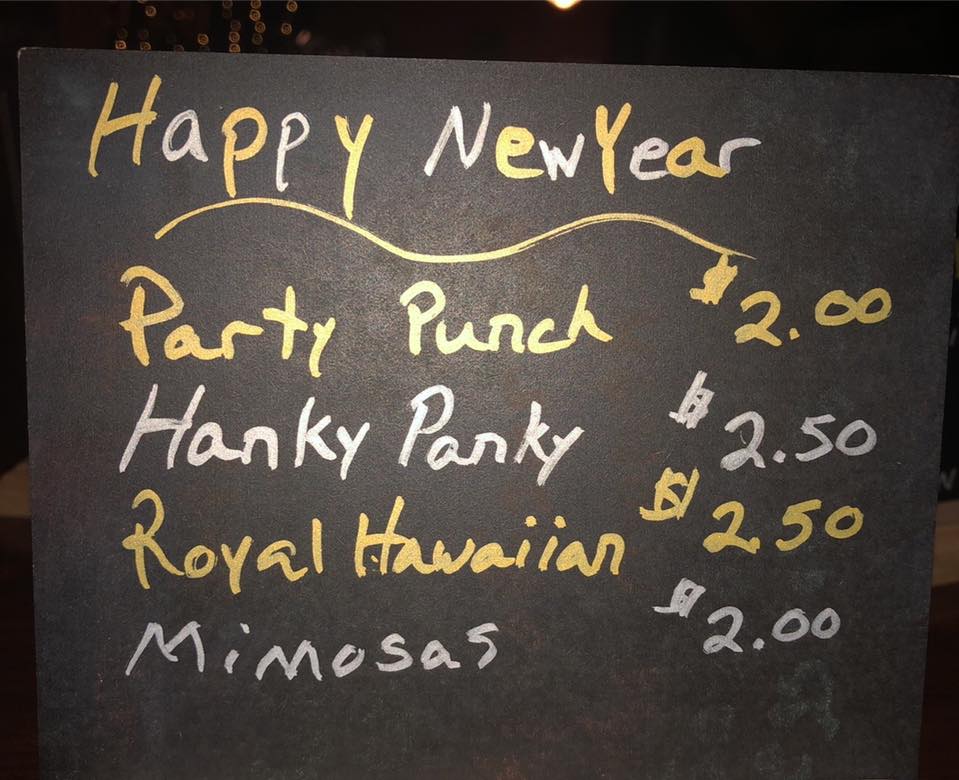 Happy New Year
Party Punch $2.00
Hanky Panky $2.50
Royal Hawaiian $2 50
Mimosas $2.00